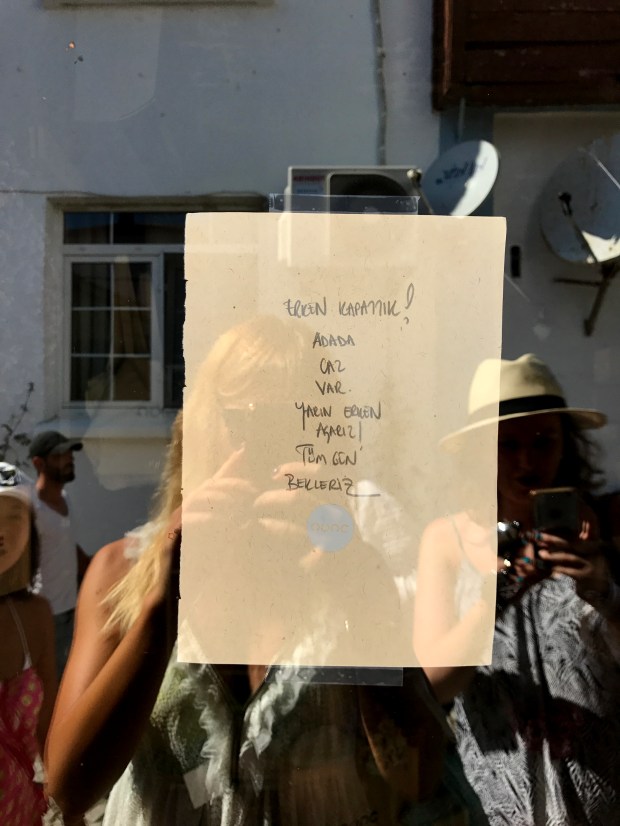 ERKEN KAPATTIK!
ADADA
CAZ
VAR.
YARIN ERKEN
AÇARIZ!
TÜM GÜN
BEKLERİZ